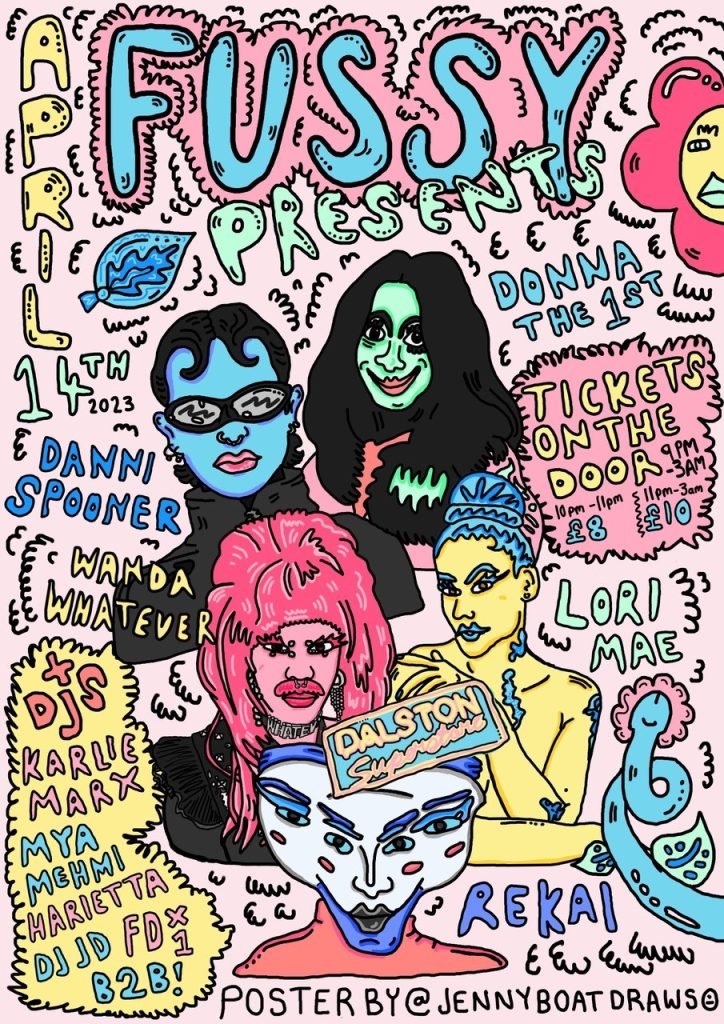 FUSSY
PRESENTS
APRIL
14TH
2023
DONNA
THE 1ST
TICKETS
ON THE
DOOR
9PM
-3AM
10pm-11pm
£8
11pm-3am
£10
DANNI
SPOONER
WANDA
WHATEVER
LORI
MAE
WHATEV
DALSTON
Superstore
+
DJS
KARLIE
MARX
MYA
MEHMI
HARIETTA
DJ JD FDX
1
B2B!
REKAI
POSTER BY @JENNYBOATDRAWS